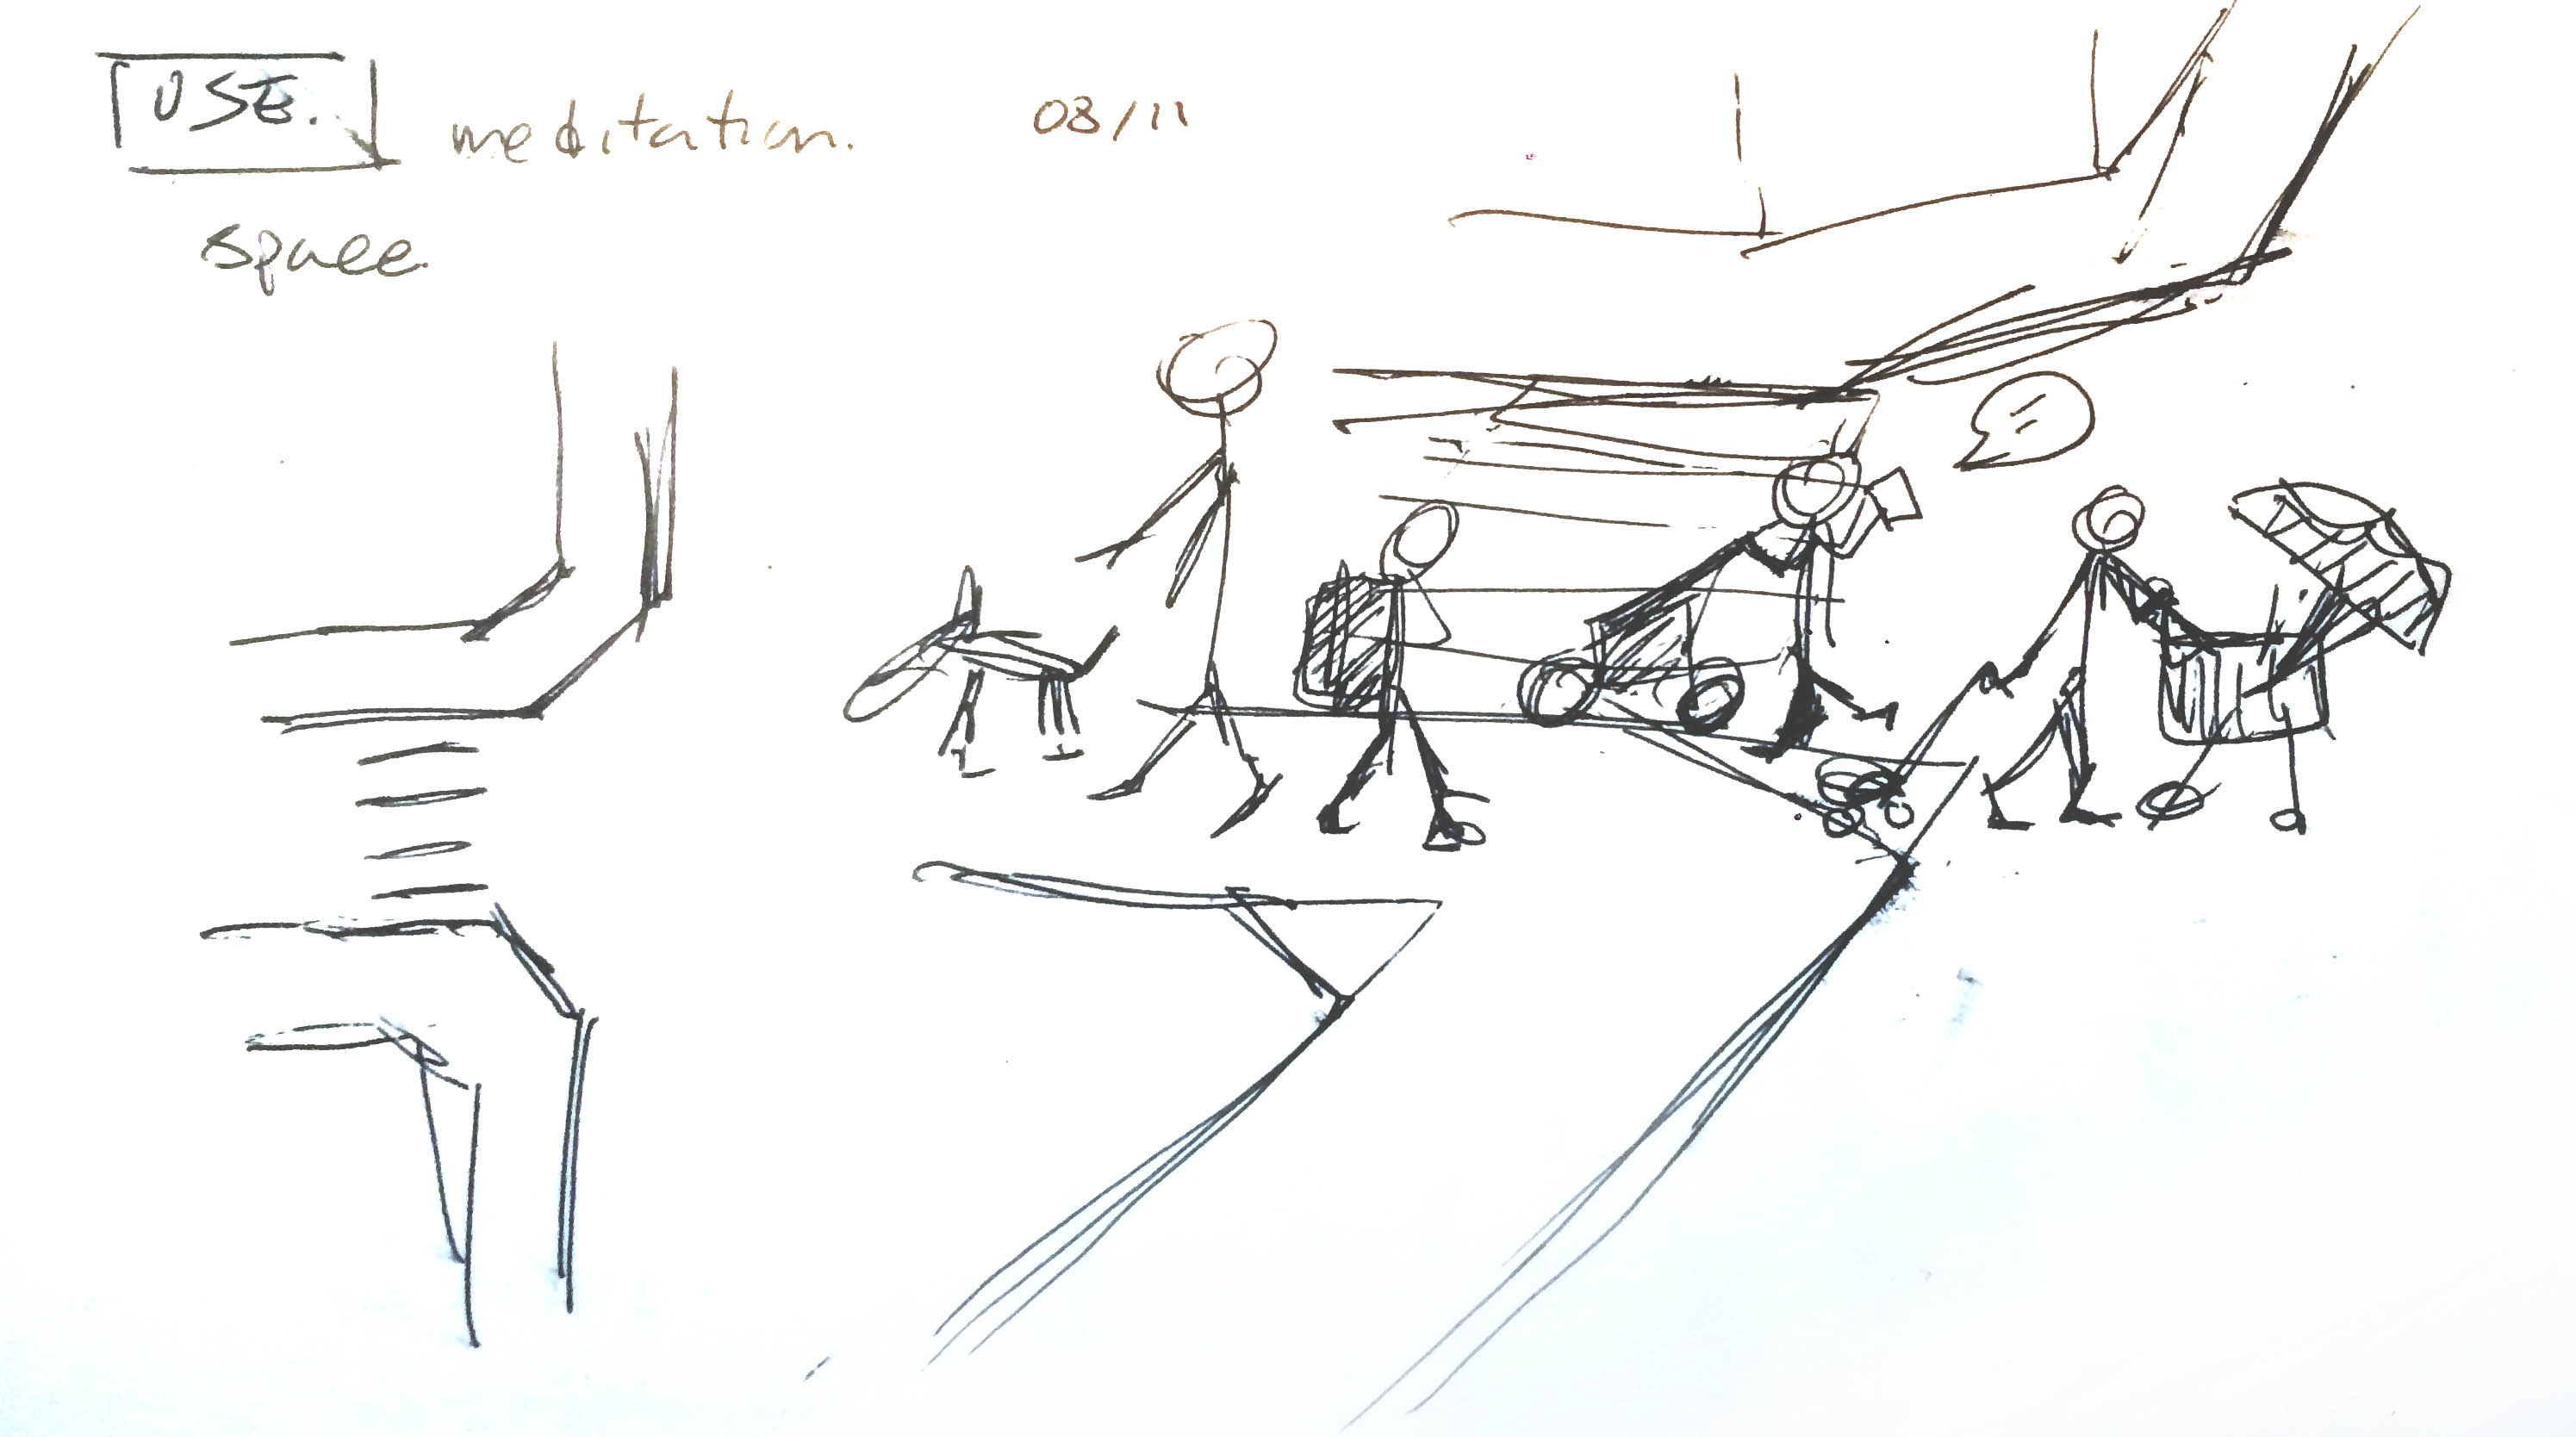 USE. meditation. 08/11
space